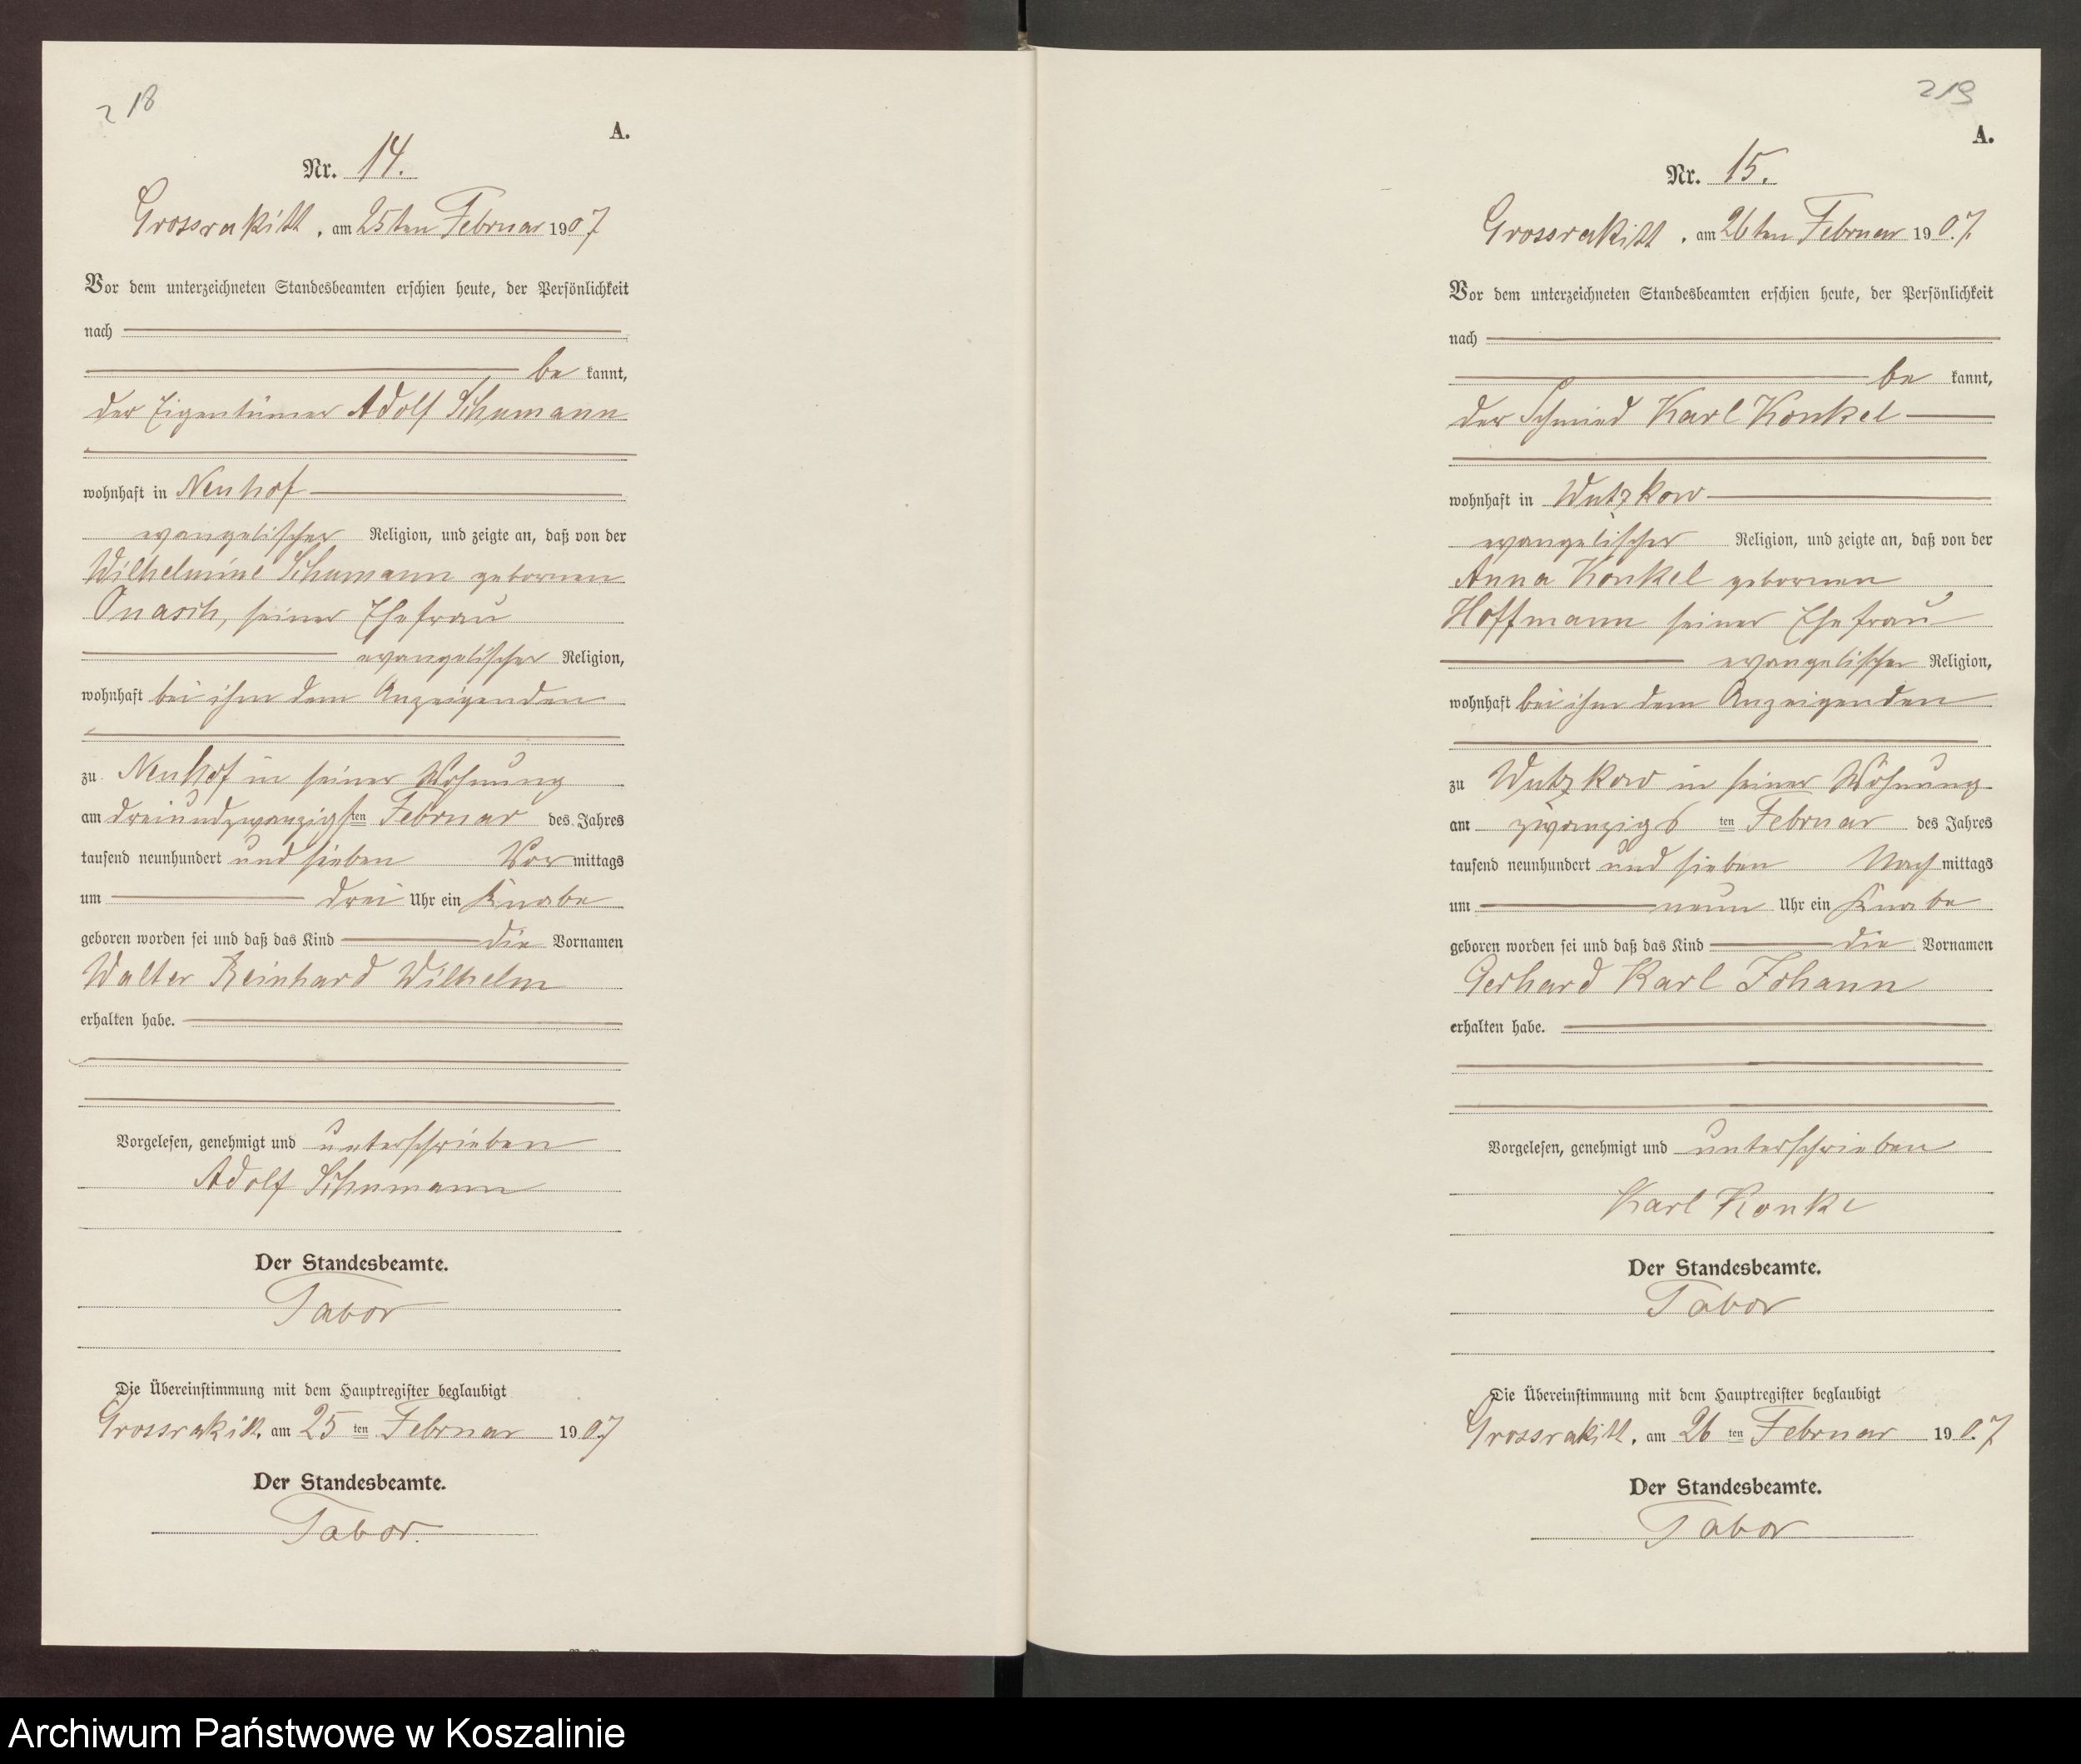 218
A.
Nr. 14.
Grossrakitt, am 25ten Februar 1907
Vor dem unterzeichneten Standesbeamten erschien heute, der Persönlichkeit
nach
be kannt,
der Eigentümer Adolf Schumann
wohnhaft in Neuhof
evangelischer Religion, und zeigte an, daß von der
Wilhelmine Schumann gebornen
Onasch, seiner Ehefrau
evangelischer Religion,
wohnhaft bei ihm dem Anzeigenden
zu Neuhof in seiner Wohnung
am dreiundzwanzigsten Februar des Jahres
tausend neunhundert und sieben Vor mittags
um drei Uhr ein Knabe
geboren worden sei und daß das Kind die Vornamen
Walter Reinhard Wilhelm
erhalten habe.
Vorgelesen, genehmigt und unterschrieben
Adolf Schumann
Der Standesbeamte.
Tabor
Die Übereinstimmung mit dem Hauptregister beglaubigt
Grossrakitt, am 25 ten Februar 1907
Der Standesbeamte.
Tabor.
219
A.
Nr. 15.
Grossrakitt, am 26ten Februar 1907.
Vor dem unterzeichneten Standesbeamten erschien heute, der Persönlichkeit
nach
be kannt,
der Schmied Karl Konkel
wohnhaft in Wutzkow
evangelischer Religion, und zeigte an, daß von der
Anna Konkel gebornen
Hoffmann seiner Ehefrau
evangelischer Religion,
wohnhaft bei ihm dem Anzeigenden
zu Wutzkow in seiner Wohnung
am zwanzigs ten Februar des Jahres
tausend neunhundert und sieben Nach mittags
um neun Uhr ein Knabe
geboren worden sei und daß das Kind die Vornamen
Gerhard Karl Johann
erhalten habe.
Vorgelesen, genehmigt und unterschrieben
Karl Konke
Der Standesbeamte.
Tabor
Die Übereinstimmung mit dem Hauptregister beglaubigt
Grossrakitt, am 26 ten Februar 1907
Der Standesbeamte.
Tabor
Archiwum Państwowe w Koszalinie